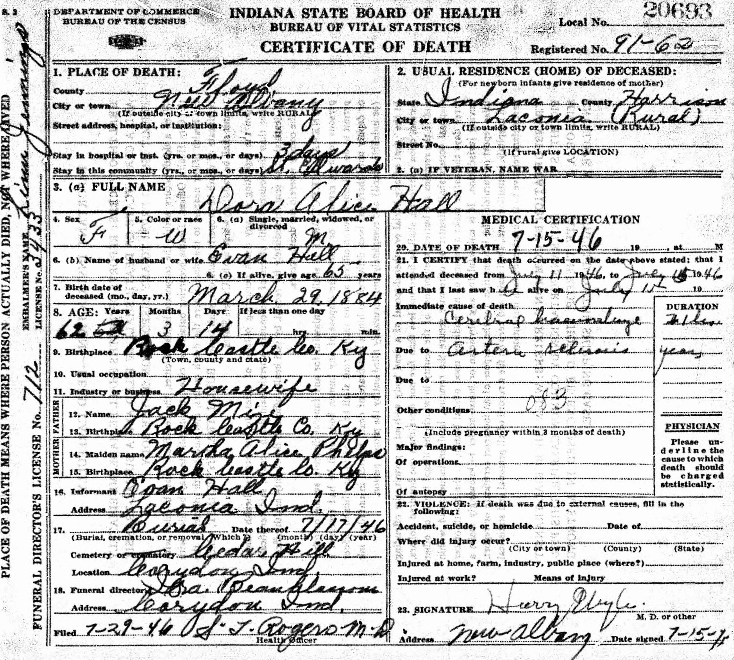 DEPARTMENT OF COMMERCE
BUREAU OF THE CENSUS
INDIANA STATE BOARD OF HEALTH
BUREAU OF VITAL STATISTICS
CERTIFICATE OF DEATH
Local No. 20693
Registered No. 91-62
PLACE OF DEATH MEANS WHERE PERSON ACTUALLY DIED, NOT WHERE LIVED
FUNERAL DIRECTOR'S LICENSE No. 712
EMBALMER'S NAME
LICENSE No. 2433
1. PLACE OF DEATH:
County Floyd
City or town New Albany
(If outside city or town limits, write RURAL)
Street address, hospital, or institution:
Stay in hospital or inst. (yrs. or mos., or days) 3 days
Stay in this community (yrs., or mos., or days) St. Edwards
2. USUAL RESIDENCE (HOME) OF DECEASED:
(For newborn infants give residence of mother)
State Indiana County Harrison
City or town Laconia (Rural)
(If outside city or town limits, write RURAL)
Street No.
(If rural give LOCATION)
2. (a) IF VETERAN, NAME WAR
3. (a) FULL NAME Dora Alice Hall
4. Sex F
5. Color or race W
6. (a) Single, married, widowed, or divorced M
6. (b) Name of husband or wife Evan Hall
6. (c) If alive, give age 65 years
7. Birth date of deceased (mo., day, yr.) March 29, 1884
8. AGE: Years 62 Months 3 Days 14 If less than one day hr. min.
9. Birthplace Rock Castle Co. Ky
(Town, county and state)
10. Usual occupation
11. Industry or business Housewife
FATHER
12. Name Jack
13. Birthplace Rock Castle Co. Ky
MOTHER
14. Maiden name Martha Alice Phelps
15. Birthplace Rock Castle Co. Ky
16. Informant Evan Hall
Address Laconia Ind.
17. Burial Date thereof 7/17/46
(Burial, cremation, or removal. Which?) (month) (day) (year)
Cemetery or crematory Cedar Hill
Location Corydon Ind.
18. Funeral director Ira
Address Corydon Ind.
Filed 7-29-46 S. T. Rogers M.D
Health Officer
MEDICAL CERTIFICATION
20. DATE OF DEATH 7-15-46 19 , at M
21. I CERTIFY that death occurred on the date above stated; that I
attended deceased from July 11 1946, to July 15 1946
and that I last saw h alive on July 15 19
Immediate cause of death
Cerebral haemorrhage
DURATION
Due to arterio sclerosis years
Due to
Other conditions 083
(Include pregnancy within 3 months of death)
Major findings:
Of operations
Of autopsy
PHYSICIAN
Please underline
the cause to which
death should
be charged
statistically.
22. VIOLENCE: If death was due to external causes, fill in the
following:
Accident, suicide, or homicide Date of
Where did injury occur?
(City or town) (County) (State)
Injured at home, farm, industry, public place (where?)
Injured at work? Means of injury
23. SIGNATURE Harry
M. D. or other
Address New Albany Date signed 7-15-4